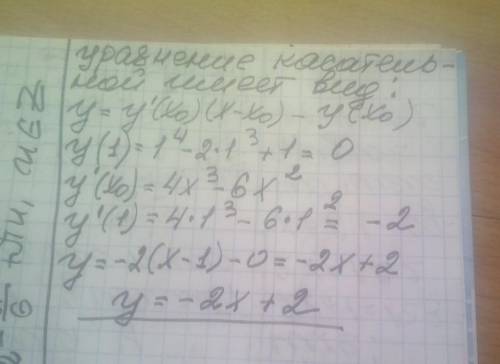 уравнение касатель-
ной имеет вид:
y = y'(x₀)(x-x₀) - y(x₀)
y(1) = 1⁴ - 2·1³ + 1 = 0
y'(x₀) = 4x³ - 6x²
y'(1) = 4·1³ - 6·1² = -2
y = -2(x-1) - 0 = -2x+2
y = -2x + 2